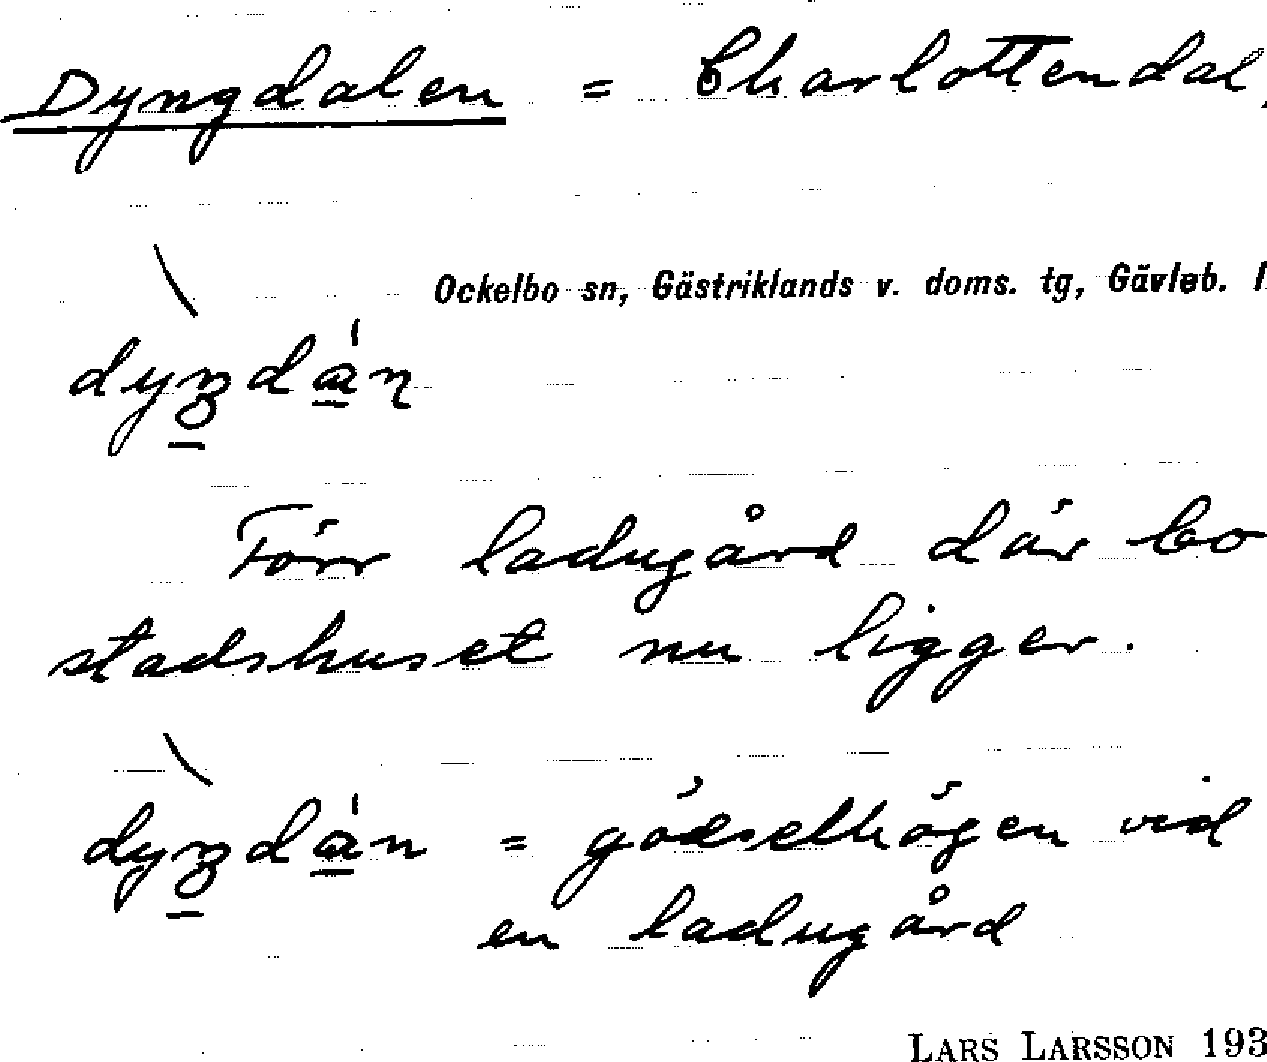 Dyngdalen = Charlottendal,
Ockelbo sn, Gästriklands v. doms. tg, Gävleb. l
Förr ladugård där bo
stadshuset nu ligger.
= gödselhögen vid
en ladugård
LARS LARSSON 193